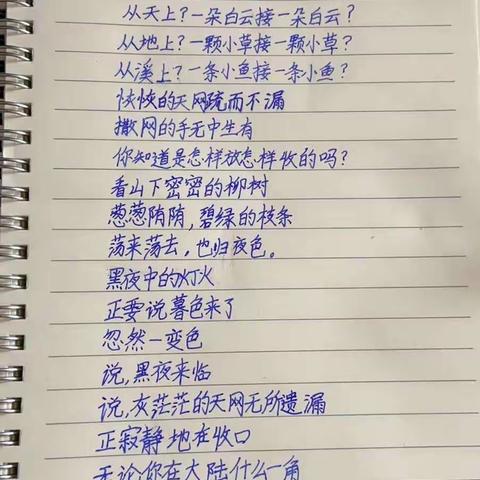 从天上？一朵白云接一朵白云？
从地上？一颗小草接一颗小草？
从溪上？一条小鱼接一条小鱼？
恢恢的天网疏而不漏
撒网的手无中生有
你知道是怎样放怎样收的吗？
看山下密密的柳树
葱葱陏陏，碧绿的枝条
荡来荡去，也归夜色。
黑夜中的灯火
正要说暮色来了
忽然一变色
说，黑夜来临
说，灰茫茫的天网无所遗漏
正寂静地在收口
无论你在大陆什么一角